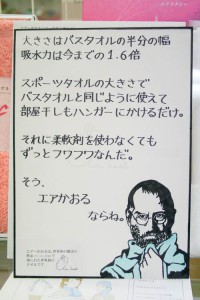 大きさはバスタオルの半分の幅
吸水力は今までの1.6倍
スポーツタオルの大きさで
バスタオルと同じように使えて
部屋干しもハンガーにかけるだけ。
それに柔軟剤を使わなくても
ずっとフワフワなんだ。
そう、
エアかおる
ならね。